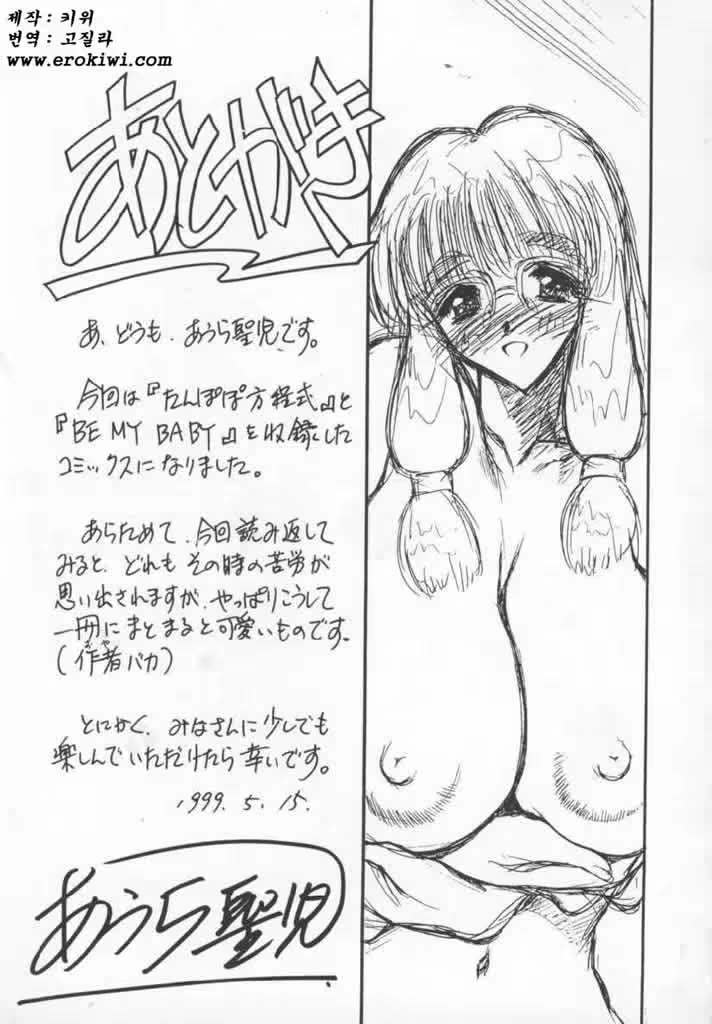 제작 : 키위
번역 : 고질라
www.erokiwi.com
あとがき
あ、どうも、あうら聖児です。
今回は『たんぽぽ方程式』と
『BE MY BABY』を収録した
コミックスになりました。
あらためて、今回読み返して
みると、どれもその時の苦労が
思い出されますが、やっぱりこうして
一冊にまとまると可愛いものです。
(作者バカ)
とにかく、みなさんに少しでも
楽しんでいただけたら幸いです。
1999. 5. 15.
あうら聖児